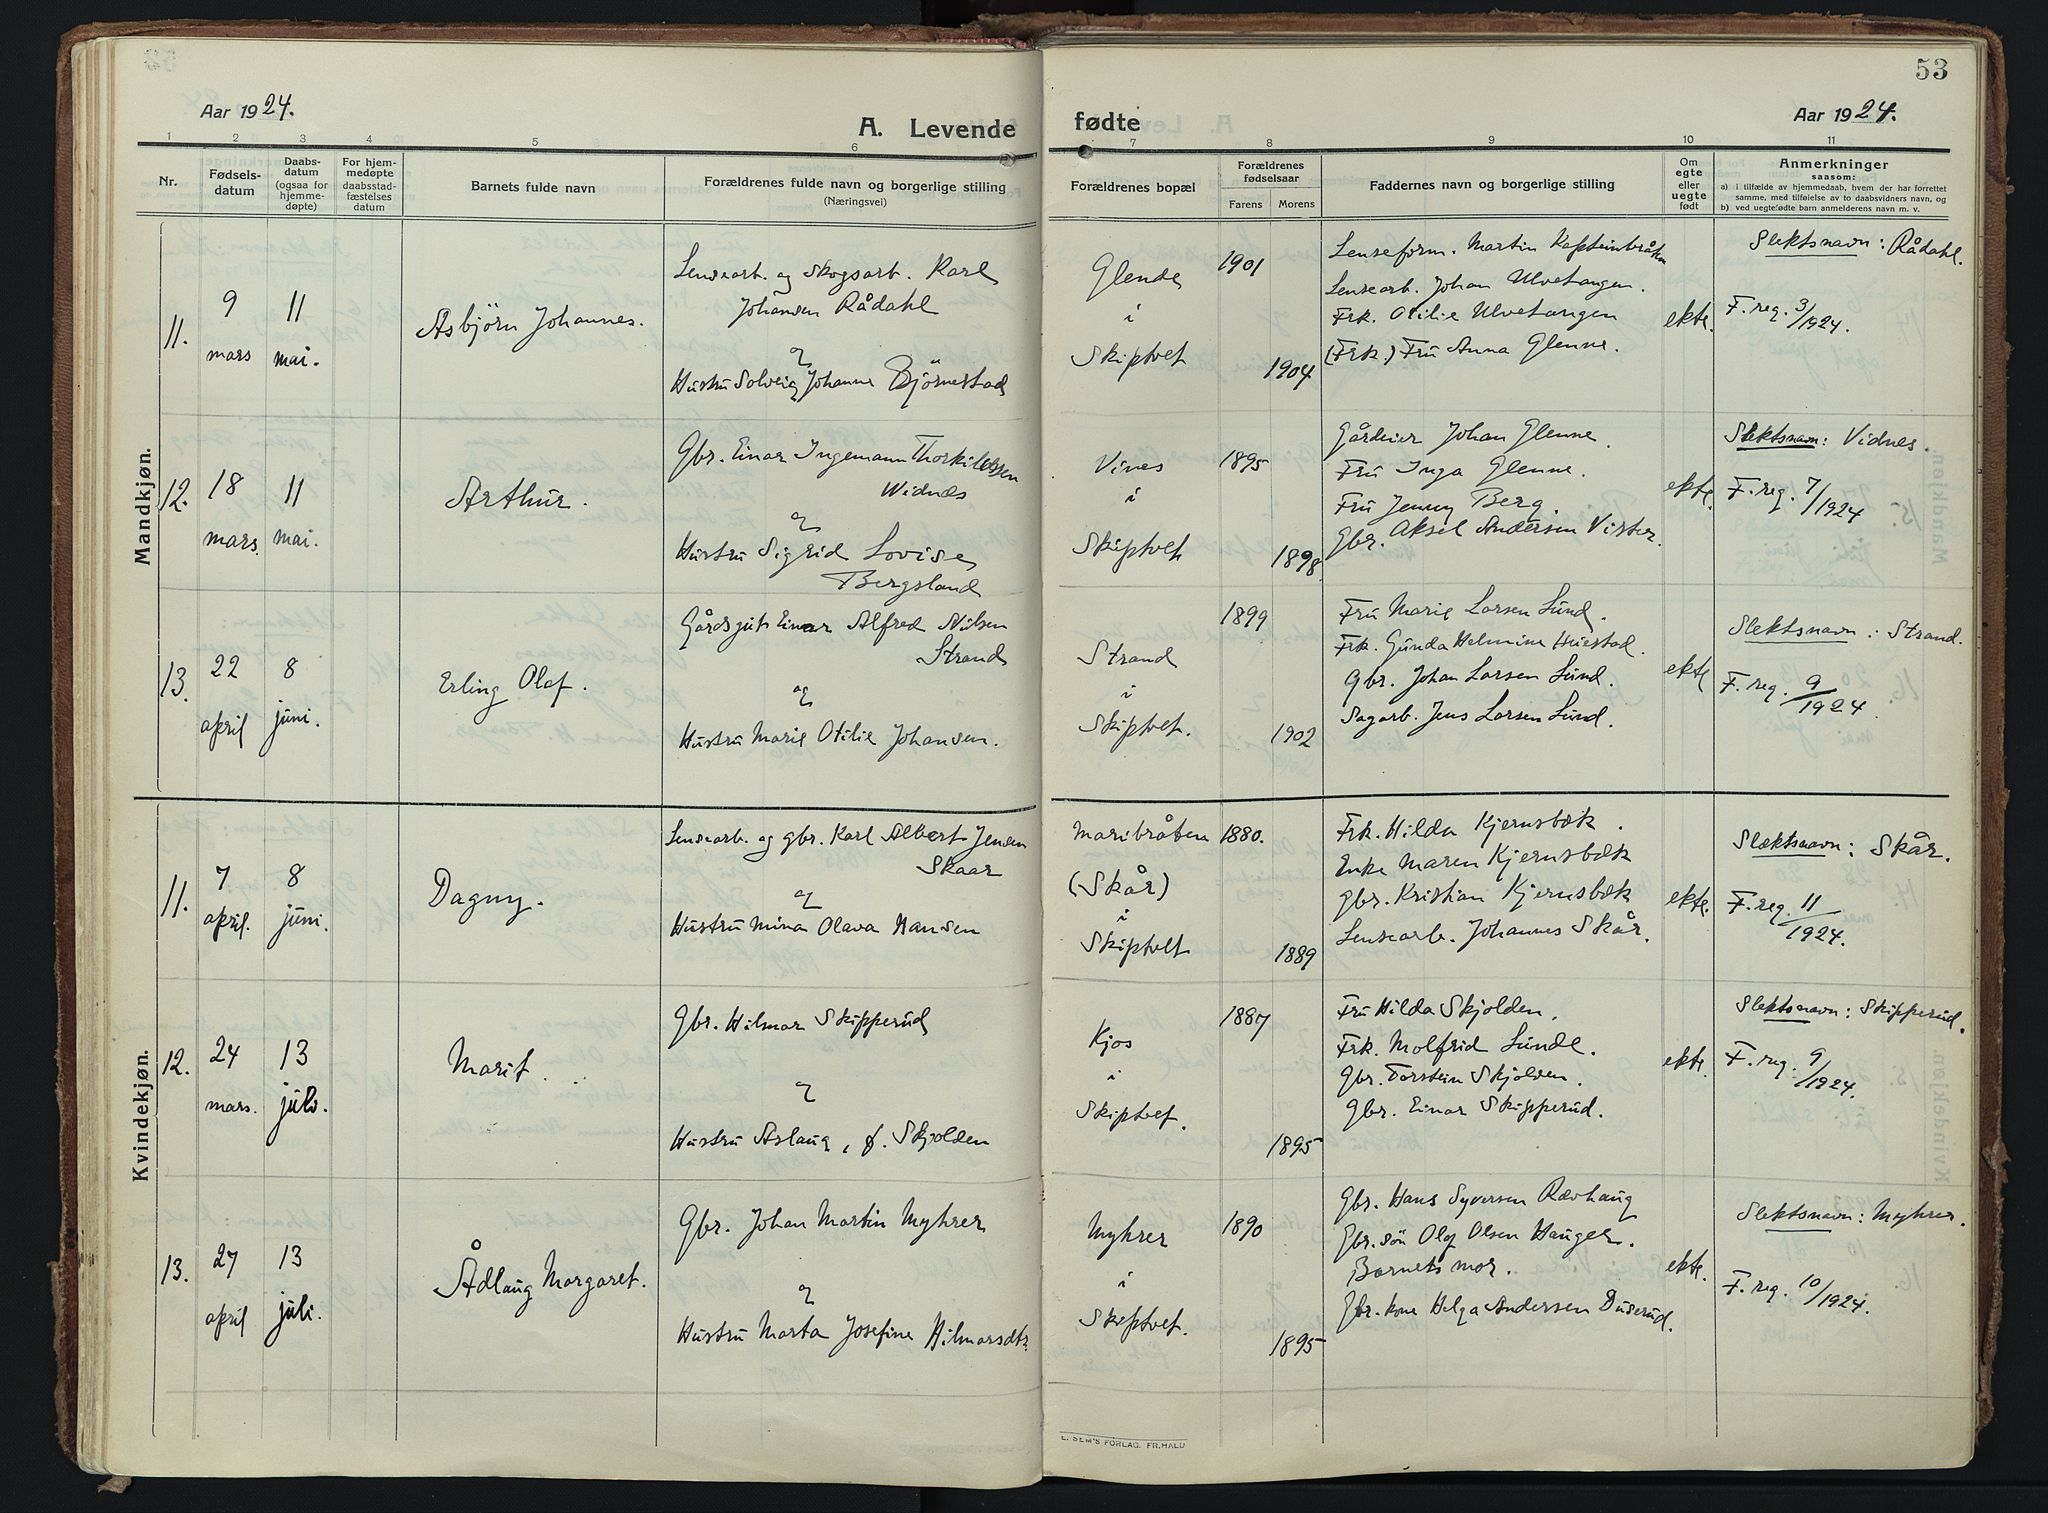 53
Aar 1924.
A. Levende fødte
Aar 1924.
1 2 3 4 5 6 7 8 9 10 11
Nr.
Fødselsdatum
Daabsdatum (ogsaa for hjemmedøpte)
For hjemmedøpte daabsstadfæstelses datum
Barnets fulde navn
Forældrenes fulde navn og borgerlige stilling
(Næringsvei)
Forældrenes bopæl
Forældrenes fødselsaar
Farens Morens
Faddernes navn og borgerlige stilling
Om egte eller uegte født
Anmerkninger
saasom:
a) i tilfælde av hjemmedaab, hvem der har forrettet samme, med tilføielse av to daabsvidners navn, og
b) ved uegtefødte barn anmelderens navn m. v.
Mandkjøn.
11.
9 mars
11 mai.
Asbjörn Johannes.
Lensearb. og Skogsarb. Karl
Johansen Rådahl
og
Hustru Solveig Johanne Björnestad
Glende
i
Skiptvet
1901
1904
Lenseform. Martin Kapteinbråten
Lensearb. Johan Ulvetangen.
Frk. Otilie Ulvetangen
(Frk.) Fru Anna Glenne.
ekte.
Slektsnavn: Rådahl.
F. reg. 3/1924.
12.
18 mars.
11 mai.
Arthur.
Gbr. Einar Ingemann Thorkildsen
Widnæs
og
Hustru Sigrid Lovise
Bergsland
Vines
i
Skiptvet
1895
1898.
Gårdeier Johan Glenne.
Fru Inga Glenne.
Fru Jenny Berg.
Gbr. Aksel Andersen Vister.
ekte.
Slektsnavn: Vidnes.
F. reg. 7/1924
13.
22 april
8 juni.
Erling Olaf.
Gårdsgut Einar Alfred Nilsen
Strand
og
Hustru Marie Otilie Johansen.
Strand
i
Skiptvet.
1899
1902
Fru Marie Larsen Lund.
Frk. Gunda Helmine Huestad.
Gbr. Johan Larsen Lund.
Sagarb. Jens Larsen Lund.
ekte
Slektsnavn: Strand.
F. reg. 9/1924.
Kvindekjøn.
11.
7 april.
8 juni.
Dagny.
Lensearb. og gbr. Karl Albert Jensen
Skaar
og
Hustru Mina Olava Hansen
Maribråten
(Skår)
i
Skiptvet
1880.
1889
Frk. Hilda Kjernsbæk.
Enke Maren Kjernsbæk
gbr. Kristian Kjernsbæk
Lensearb. Johannes Skår.
ekte.
Slektsnavn: Skår.
F. reg. 11/1924.
12.
24 mars.
13 juli.
Marit.
Gbr. Hilmar Skipperud
og
Hustru Aslaug, f. Skjolden
Kjos
i
Skiptvet.
1887
1895
Fru Hilda Skjolden.
Frk. Molfrid Lunde.
Gbr. Torstein Skjolden.
Gbr. Einar Skipperud.
ekte.
Slektsnavn: Skipperud.
F. reg. 9/1924.
13.
27 april
13 juli.
Ådlaug Margaret.
Gbr. Johan Martin Myhrer
og
Hustru Marta Josefine Hilmarsdtr.
Myhrer
i
Skiptvet.
1890
1895
Gbr. Hans Syversen Rævhaug
Gbr. søn Olaf Olsen Haugen.
Barnets mor.
Gbr. kone Helga Andersen Duserud.
ekte.
Slektsnavn: Myhrer.
F. reg. 10/1924.
E. SEM'S FORLAG. FR.HALD